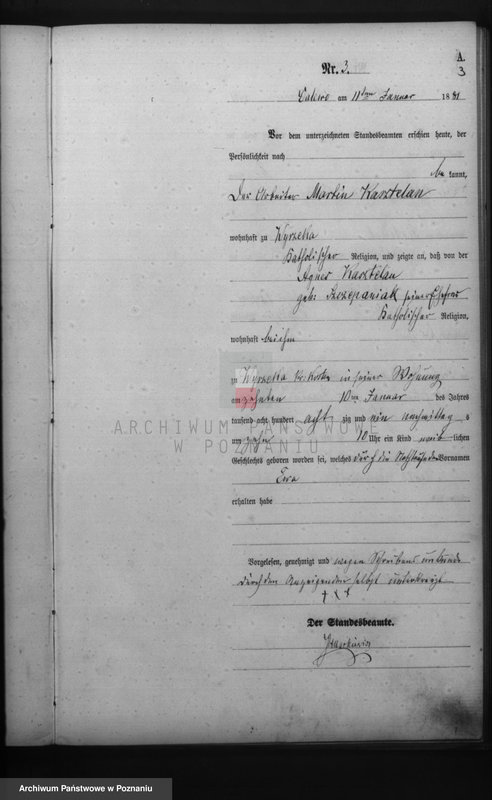 A.
3
Nr. 3.
am 11ten Januar 1881
Vor dem unterzeichneten Standesbeamten erschien heute, der
Persönlichkeit nach
be kannt,
Der Arbeiter Martin Kasztelan
wohnhaft zu Kyrzetka
katholischer Religion, und zeigte an, daß von der
Agnes Kasztelan
geb: Szczepaniak seiner Ehefrau
katholischer Religion,
wohnhaft bei ihm
zu Kyrzetka in seiner Wohnung
am zehnten 10ten Januar des Jahres
tausend acht hundert acht zig und ein nachmittag s
um zehn 10 Uhr ein Kind weib lichen
Geschlechts geboren worden sei, welches Vornamen
Ewa
erhalten habe
Vorgelesen, genehmigt und wegen Schreibens unkunde
durch den Anzeigenden selbst unterkreuzt
+ + +
Der Standesbeamte.
ARCHIWUM PAŃSTWOWE
W POZNANIU
Archiwum Państwowe w Poznaniu